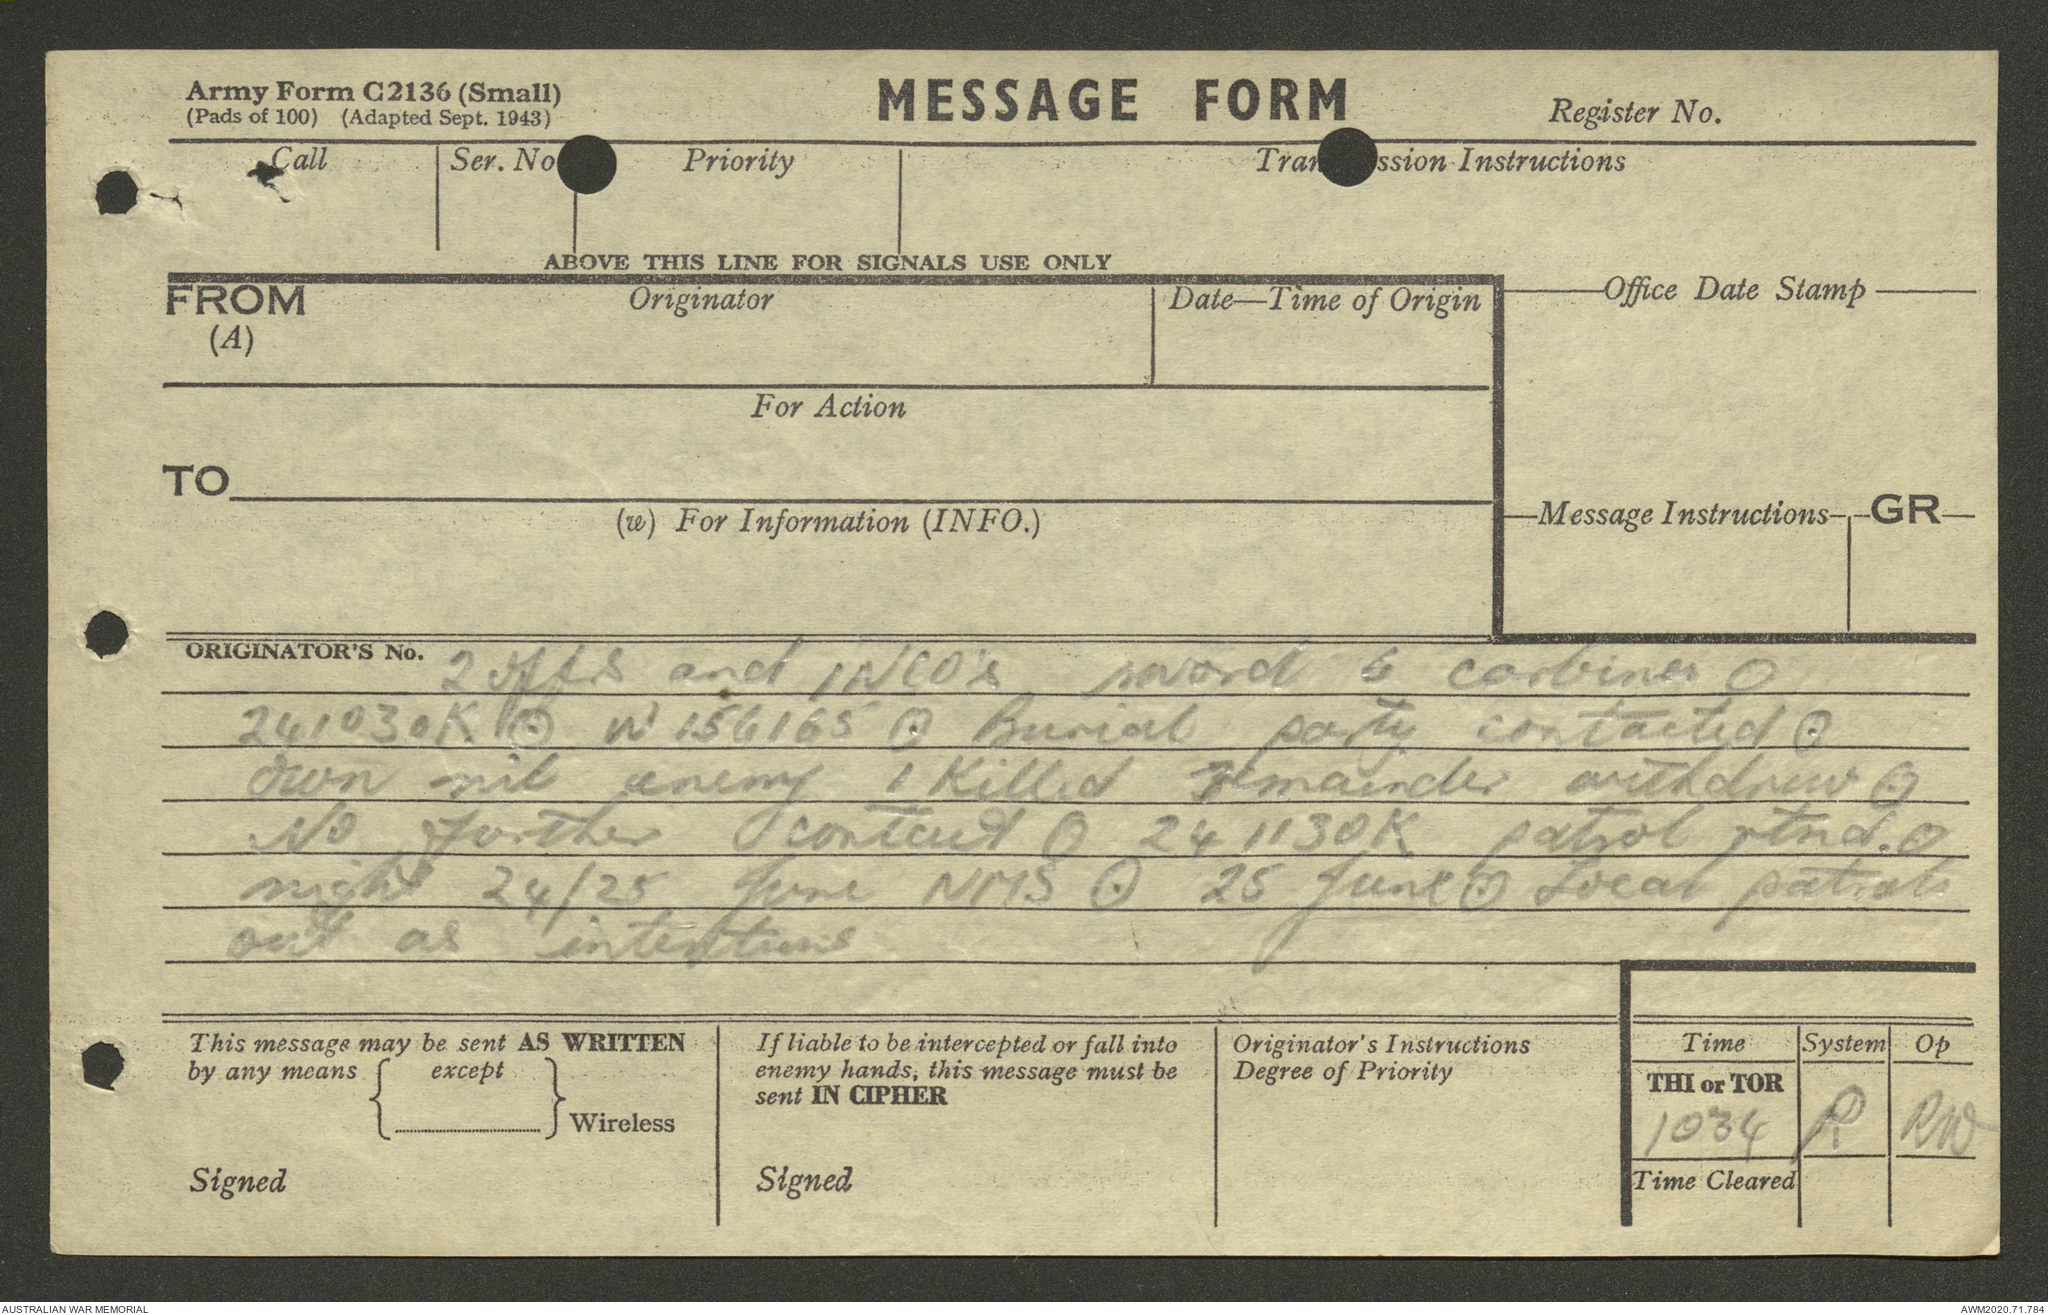 Army Form C2136 (Small)
(Pads of 100) (Adapted Sept. 1943)
MESSAGE FORM
Register No.
Call
Ser. No
Priority
Transmission Instructions
ABOVE THIS LINE FOR SIGNALS USE ONLY
FROM
(A)
Originator
Date—Time of Origin
Office Date Stamp
For Action
TO
(w) For Information (INFO.)
Message Instructions
GR
ORIGINATOR'S No.
2 offrs and 1 NCO's sword 6 carbines ⊙
241030K ⊙ 156165 ⊙ Burial party contacted ⊙
own nil enemy 1 Killed remainder withdrew ⊙
No further contact ⊙ 241130K patrol rtnd. ⊙
night 24/25 June NMS ⊙ 25 June ⊙ Local patrols
out as intentions
This message may be sent AS WRITTEN
by any means { except } Wireless
Signed
If liable to be intercepted or fall into
enemy hands, this message must be
sent IN CIPHER
Signed
Originator's Instructions
Degree of Priority
Time
System
Op
THI or TOR
1034
RW
Time Cleared
AUSTRALIAN WAR MEMORIAL
AWM2020.71.784